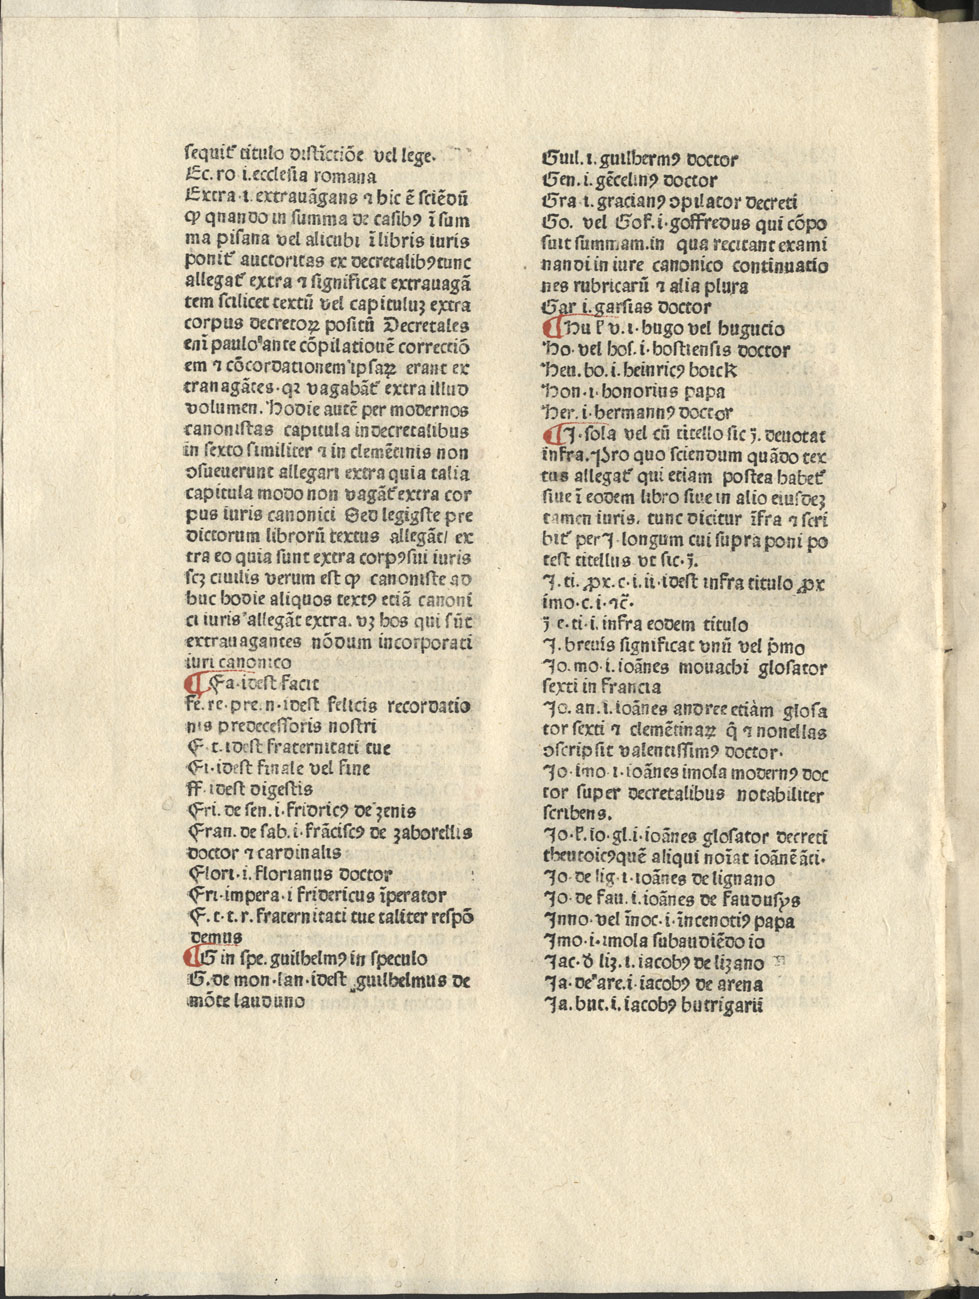 sequit᷑ titulo distĩctiõe vel lege.
Ec. ro i. ecclesia romana
Extra. i. extrauãgans ⁊ hic ẽ sciẽdũ
ꝙ quando in summa de casibꝰ ĩ sum
ma pisana vel alicubi ĩ libris iuris
ponit᷑ auctoritas ex decretalibꝰ tunc
allegat᷑ extra ⁊ significat extrauagã
tem scilicet textũ vel capituluꝫ extra
corpus decretoꝝ positũ Decretales
eni paulo ante cõpilationẽ correctiõ
em ⁊ cõcordationem ipsaꝝ erant ex
trauagãtes. qꝛ vagabãt᷑ extra illud
volumen. Hodie autẽ per modernos
canonistas capitula in decretalibus
in sexto similiter ⁊ in clemẽtinis non
ↄsueuerunt allegari extra quia talia
capitula modo non vagãt᷑ extra cor
pus iuris canonici Sed legigste pre
dictorum librorũ textus allegãt/ ex
tra eo quia sunt extra corpꝰ sui iuris
scꝫ ciuilis verum est ꝙ canoniste ad
huc hodie aliquos textꝰ etiã canoni
ci iuris allegãt extra. vꝫ hos qui sũt
extrauagantes nõdum incorporati
iuri canonico
¶ Fa. idest facit
Fe. re. pre. n. idest felicis recordatio
nis predecessoris nostri
F. t. idest fraternitati tue
Fi. idest finale vel fine
ff. idest digestis
Fri. de sen. i. fridricꝰ de zenis
Fran. de sab. i. frãciscꝰ de zaborellis
doctor ⁊ cardinalis
Flori. i. florianus doctor
Fri. impera. i fridericus ĩperator
F. t. t. r. fraternitati tue taliter respõ
demus
¶ G in spe. guilhelmꝰ in speculo
G. de mon. lan. idest guilhelmus de
mõte lauduno
Guil. i. guilhermꝰ doctor
Gen. i. gẽcelinꝰ doctor
Gra i. gracianꝰ ↄpilator decreti
Go. vel Gof. i. goffredus qui cõpo
suit summam. in qua recitant exami
nandi in iure canonico continuatio
nes rubricarũ ⁊ alia plura
Gar i. garsias doctor
¶ Hu ł v. i. hugo vel hugucio
Ho. vel hos. i. hostiensis doctor
Hen. bo. i. heinricꝰ boick
Hon. i. honorius papa
Her. i. hermannꝰ doctor
¶ J. sola vel cũ titello sic J̃. denotat
infra. Pro quo sciendum quãdo tex
tus allegat᷑ qui etiam postea habet᷑
siue ĩ eodem libro siue in alio eiusdeꝫ
tamen iuris. tunc dicitur ĩfra ⁊ scri
bit᷑ per J. longum cui supra poni po
test titellus vt sic. J̃.
J. ti. ꝓx. c. i. ii. idest infra titulo ꝓx
imo. c. i. ⁊c̃.
J̃ e. ti. i. infra eodem titulo
J. breuis significat vnũ vel p̃mo
Jo. mo. i. ioãnes mouachi glosator
sexti in francia
Jo. an. i. ioãnes andree etiàm glosa
tor sexti ⁊ clemẽtinaꝝ q̃ ⁊ nonellas
ↄscripsit valentissimꝰ doctor.
Jo. imo. i. ioãnes imola modernꝰ doc
tor super decretalibus notabiliter
scribens.
Jo. ł. io. gl. i. ioãnes glosator decreti
theutoicꝰ quẽ aliqui noĩat ioãnẽ ãti.
Jo de lig. i. ioãnes de lignano
Jo. de fau. i. ioãnes de faudusys
Inno. vel ĩnoc. i. ĩncenotiꝰ papa
Jmo. i. imola subaudiẽdo io
Jac. đ liz. i. iacobꝰ de lizano
Ja. de are. i. iacobꝰ de arena
Ja. but. i. iacobꝰ butrigarii